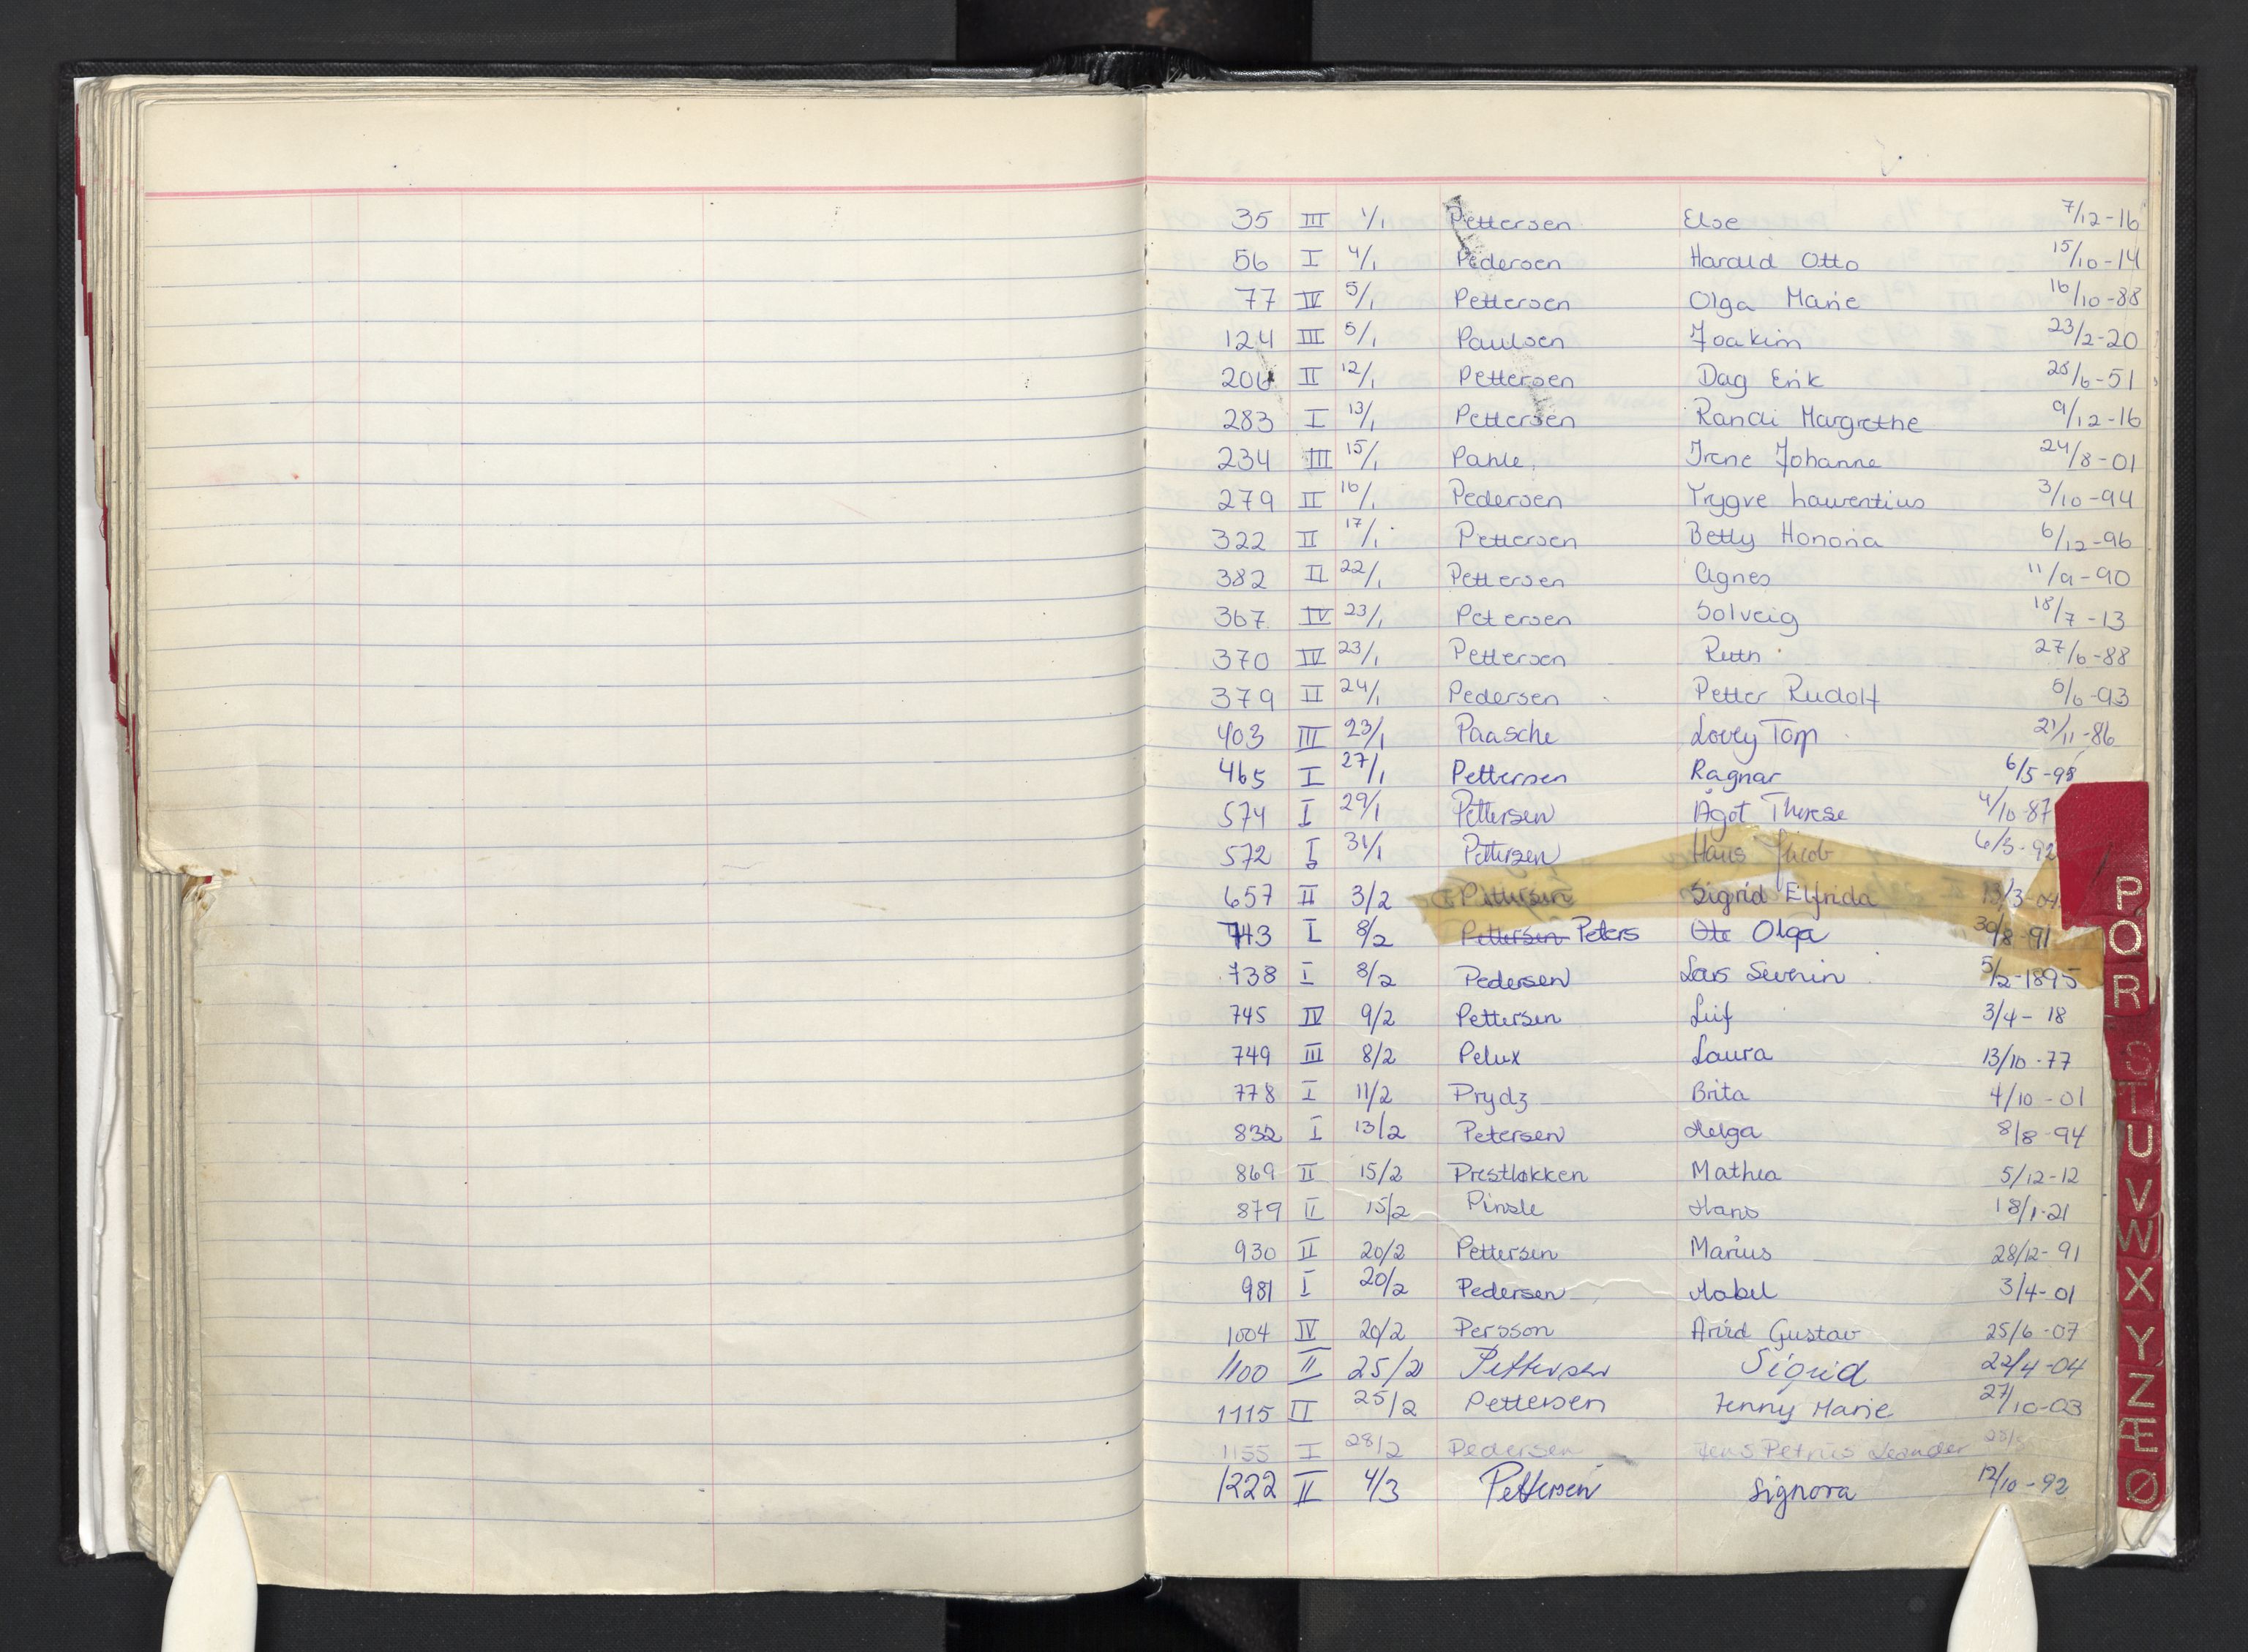 35 III 1/1 Pettersen Else 7/12-16
56 I 4/1 Pedersen Harald Otto 15/10-14
77 IV 5/1 Pettersen Olga Marie 16/10-88
124 III 5/1 Paulsen Joakim 23/2-20
206 II 12/1 Pettersen Dag Erik 28/6-51
283 I 13/1 Pettersen Randi Margrethe 9/12-16
234 III 15/1 Pahle Irene Johanne 24/8-01
279 II 16/1 Pedersen Trygve Laurentius 3/10-94
322 II 17/1 Pettersen Betty Honoria 6/12-96
382 II 22/1 Pettersen Agnes 11/9-90
367 IV 23/1 Petersen Solveig 18/7-13
370 IV 23/1 Pettersen Ruth 27/6-88
379 II 24/1 Pedersen Petter Rudolf 5/6-93
403 III 23/1 Paasche Lovey Torp 21/11-86
465 I 27/1 Pettersen Ragnar 6/5-98
574 I 29/1 Pettersen Ågot Therese 4/10-87
572 I 31/1 Pettersen Hans Jacob 6/3-92
657 II 3/2 Pettersen Sigrid Elfrida 13/3-04
743 I 8/2 Pettersen Peters Ote Olga 30/8-91
738 I 8/2 Pedersen Lars Severin 5/2-1895
745 IV 9/2 Pettersen Leif 3/4-18
749 III 8/2 Pelux Laura 13/10-77
778 I 11/2 Prydz Brita 4/10-01
832 I 13/2 Petersen Helga 8/8-94
869 II 15/2 Prestløkken Mathea 5/12-12
879 II 15/2 Pinsle Hans 18/1-21
930 II 20/2 Pettersen Marius 28/12-91
981 I 20/2 Pedersen Mabel 3/4-01
1004 IV 20/2 Persson Arvid Gustav 25/6-07
1100 II 25/2 Pettersen Sigrid 22/4-04
1115 II 25/2 Pettersen Jenny Marie 27/10-03
1155 I 28/2 Pedersen Jens Petrus Leander
1222 II 4/3 Pettersen Signora 12/10-92
P
Q
R
S
T
U
V
W
X
Y
Z
Æ
Ø